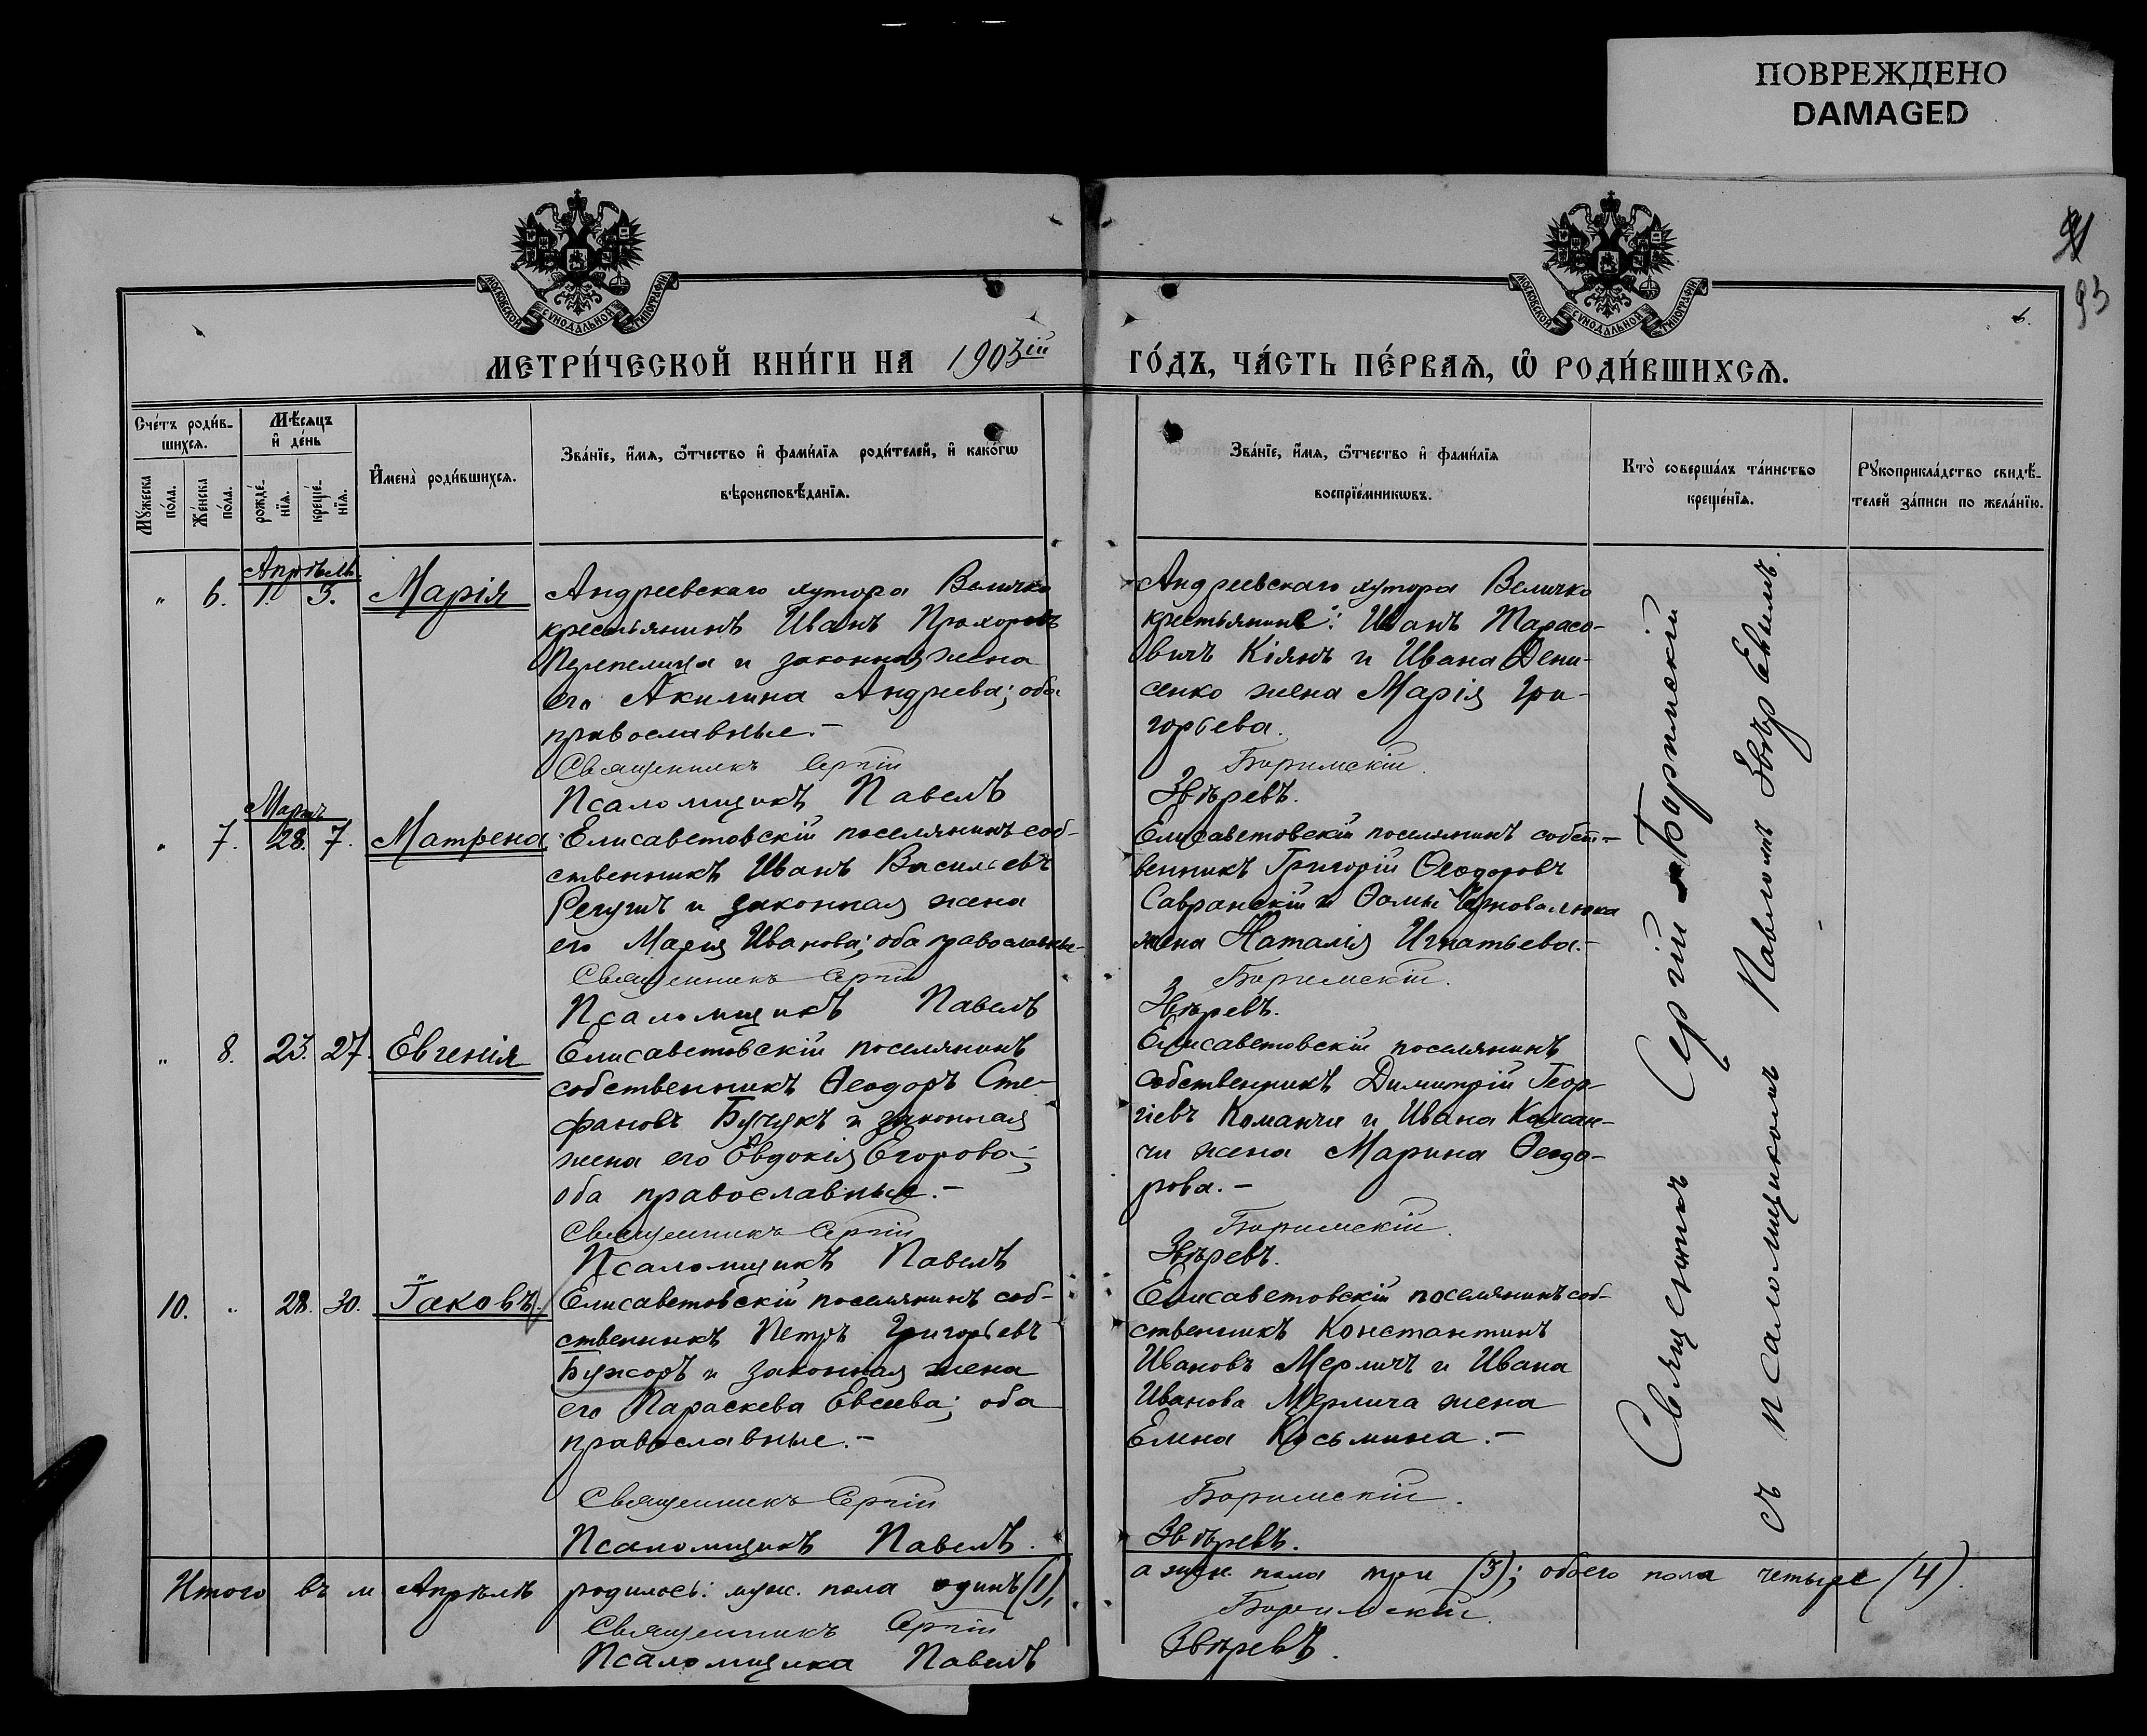 ПОВРЕЖДЕНО
DAMAGED
93
6.
МОСКОВСКОЙ СУНОДАЛЬНОЙ ТИПОГРАФІИ
МОСКОВСКОЙ СУНОДАЛЬНОЙ ТИПОГРАФІИ
МЕТРИ́ЧЕСКОЙ КНИ́ГИ НА 1903ій ГО́ДЪ, ЧА́СТЬ ПЕ́РВАѦ, Ѡ҆ РОДИ́ВШИХСѦ.
Сче́тъ роди́в-
шихсѧ.
Мꙋ́жеска
по́ла.
Же́нска
по́ла.
Мѣ́сѧцъ
и҆ де́нь
рожде́-
нїѧ.
креще́-
нїѧ.
И҆мена̀ роди́вшихсѧ.
Зва́нїе, и҆́мѧ, ѻ҆́тчество и҆ фами́лїѧ роди́телей, и҆ како́гѡ
вѣроисповѣ́данїѧ.
Зва́нїе, и҆́мѧ, ѻ҆́тчество и҆ фами́лїѧ
воспрїе́мникѡвъ.
Кто̀ соверша́лъ та́инство
креще́нїѧ.
Рꙋкоприкла́дство свидѣ́-
телей за́писи по жела́нїю.
Апрѣль
" 6. 1. 3. Марія
Андреевскаго хутора Величко
крестьянинъ Иванъ Прохоровъ
Перепелица и законная жена
его Акилина Андреева; оба
православные.-
Священникъ Сергій
Псаломщикъ Павелъ
Андреевскаго хутора Величко
крестьяне: Иванъ Тарасо-
вичъ Кіянъ и Ивана Дени-
сенко жена Марія Гри-
горьева.
Боримскій.
Звѣревъ.
Мартъ
" 7. 28. 7. Матрена
Елисаветовскій поселянинъ соб-
ственникъ Иванъ Васильевъ
и законная жена
его Марія Иванова; оба православные-
Священникъ Сергій
Псаломщикъ Павелъ
Елисаветовскій поселянинъ собст-
венникъ Григорій Ѳеодоровъ
Савранскій и Ѳомы
жена Наталія Игнатьева.-
Боримскій.
Звѣревъ.
" 8. 23. 27. Евгенія
Елисаветовскій поселянинъ
собственникъ Ѳеодоръ Сте-
фановъ Бучукъ и законная
жена его Евдокія Егорова;
оба православные.-
Священникъ Сергій
Псаломщикъ Павелъ
Елисаветовскій поселянинъ
собственникъ Димитрій Геор-
гіевъ Команчи и Ивана Коман-
чи жена Марина Ѳеодо-
рова.-
Боримскій.
Звѣревъ.
10. " 28. 30. Іаковъ.
Елисаветовскій поселянинъ соб-
ственникъ Петръ Григорьевъ
Бужоръ и законная жена
его Параскева Евсеева; оба
православные.-
Священникъ Сергій
Псаломщикъ Павелъ.
Елисаветовскій поселянинъ соб-
ственникъ Константинъ
Ивановъ Мерличъ и Ивана
Иванова Мерлича жена
Елена Косьмина.-
Боримскій.
Звѣревъ.
Священникъ Сергій Боримскій
съ псаломщикомъ Павломъ Звѣревымъ.
Итого въ м Апрѣлѣ родилось: муж. пола одинъ (1), а жен. пола три (3); обоего пола четыре (4).
Священникъ Сергій Боримскій.
Псаломщика Павелъ Звѣревъ.